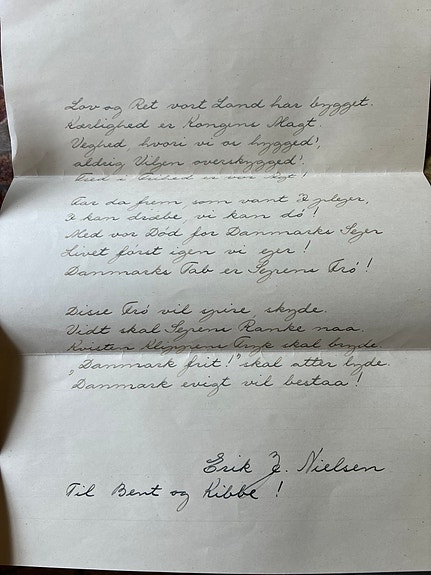 Lov og Ret vort Land har bygget.
Kærlighed er Kongens Magt.
Veghed, hvori vi er hygged',
aldrig Viljen overskygged'.
Fred i Frihed er vor Agt!
Far da frem som vant I plejer,
I kan dræbe, vi kan dö!
Med vor Död for Danmarks Sejer
Livet först igen vi ejer!
Danmarks Tab er Sejrens Frö!
Disse Frö vil spire, skyde.
Vidt skal Sejrens Ranke naa.
Kvisten Klippens Tryk skal bryde
„Danmark frit!" skal atter lyde.
Danmark evigt vil bestaa!
Erik Z. Nielsen
Til Bent og Kibbe!